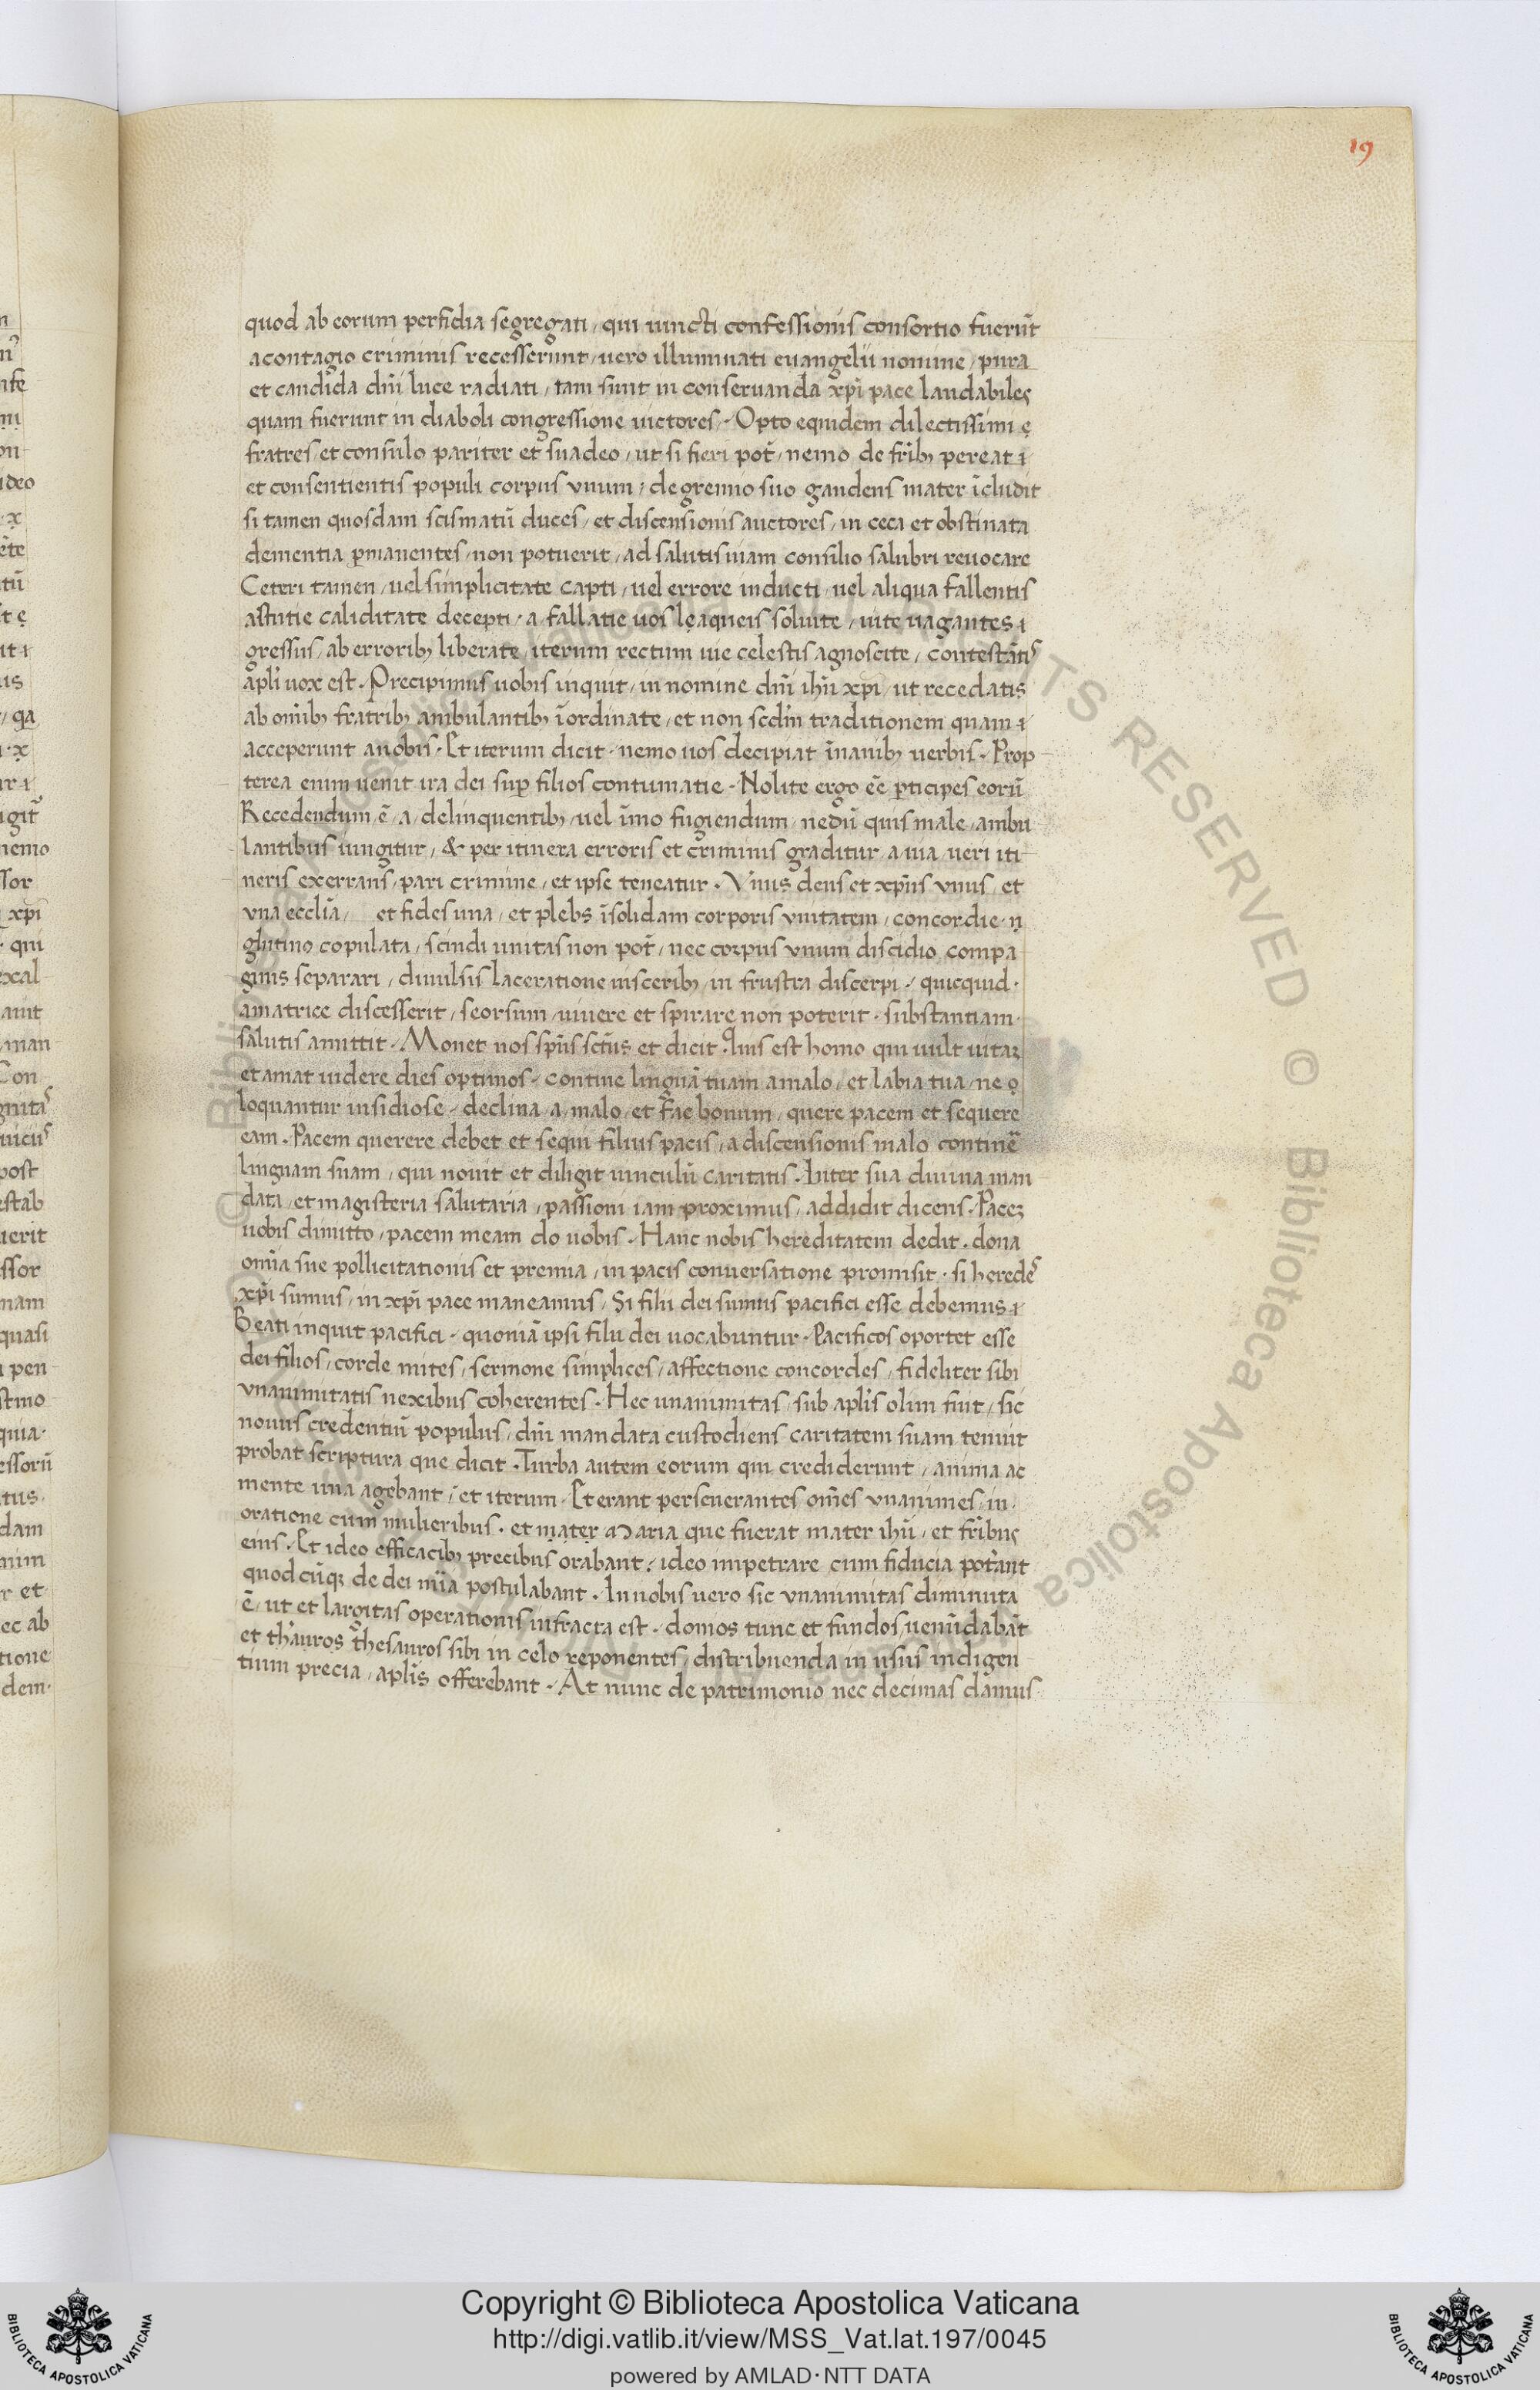 19
quod ab eorum perfidia segregati, qui iuncti confessionis consortio fuerūt
a contagio criminis recesserunt, uero illuminati euangelii nomine, pura
et candida dn̄i luce radiati, tam sunt in conseruanda xp̄i pace laudabiles
quam fuerunt in diaboli congressione uictores. Opto equidem dilectissimi ẹ
fratres et consulo pariter et suadeo, ut si fieri pot̄, nemo de fr̄ib; pereat ɨ
et consentientis populi corpus vnum, de gremio suo gaudens mater īcludit
si tamen quosdam scismatū duces, et discensionis auctores, in ceca et obstinata
dementia ꝑmanentes, non potuerit, ad salutis uiam consilio salubri reuocare
Ceteri tamen, uel simplicitate capti, uel errore inducti, uel aliqua fallentis
astutie caliditate decepti, a fallatie uos lẹaqueis soluite, uite uagantes ɨ
gressus, ab errorib; liberate, iterum rectum uie celestis agnoscite, contestāti⁹
apl̄i uox est. Precipimus uobis inquit, in nomine dn̄i ihū xp̄i, ut recedatis
ab om̄ib; fratrib; ambulantib; īordinate, et non scd̄m traditionem quam ɨ
acceperunt a nobis. Et iterum dicit. nemo uos decipiat īnanib; uerbis. Prop
terea enim uenit ira dei suꝑ filios contumatie. Nolite ergo eē ꝑticipes eorū
Recedendum, ē, a, delinquentib;, uel īmo fugiendum, nedū quis male, ambu
lantibus iungitur, & per itinera erroris et criminis graditur, a uia, ueri iti
neris exerrans, pari crimine, et ipse teneatur. Vnus deus et xp̄us vnus, et
vna eccl̄ia, et fides una, et plebs īsolidam corporis vnitatem, concordie ṇ
glutino copulata, scindi unitas non pot̄, nec corpus vnum discidio, compa
ginis separari, diuulsis laceratione uiscerib;, in frustra discerpi, quicquid.
amatrice discesserit, seorsum, uiuere et spirare non poterit. substantiam.
salutis amittit. Monet nos sp̄us sct̄us et dicit. Quis est homo qui uult uitaȝ
et amat uidere dies optimos. contine linguā tuam a malo, et labia tua, ne ọ
loquantur insidiose. declina, a, malo, et fac bonum, quere pacem et sequere
eam. Pacem querere debet et sequi filius pacis, a discensionis malo continē
linguam suam, qui nouit et diligit uinculū caritatis. Inter sua diuina man
data, et magisteria salutaria, passioni iam proximus, addidit dicens. Paceȝ
uobis dimitto, pacem meam do uobis. Hanc nobis hereditatem dedit. dona
om̄ia sue pollicitationis et premia, in pacis conuersatione promisit. si herede⁹
xp̄i sumus, in xp̄i pace maneamus, Si filii dei sumus pacifici esse debemus ɨ
Beati inquit pacifici. quoniā ipsi filii dei uocabuntur. Pacificos oportet esse
dei filios, corde mites, sermone simplices, affectione concordes, fideliter sibi
vnanimitatis nexibus coherentes. Hec unanimitas, sub apl̄is olim fuit, sic
nouus credentiū populus, dn̄i mandata custodiens caritatem suam tenuit
probat scriptura que dicit. Turba autem eorum qui crediderunt, anima ac
mente una agebant, et iterum. Et erant perseuerantes om̄es vnanimes, in.
oratione cum mulieribus. et mater Maria que fuerat mater ihū, et fr̄ibus
eius. Et ideo efficacib; precibus orabant, ideo impetrare cum fiducia pot̄ant
quod cūqȝ de dei mīa postulabant. In nobis uero sic vnanimitas diminuta
ē, ut et largitas operationis infracta est. domos tunc et fundos, uenūdabāt
et th̄auros thesauros sibi in celo reponentes, distribuenda in usus indigen
tium precia, apl̄is offerebant. At nunc de patrimonio nec decimas damus.
Copyright © Biblioteca Apostolica Vaticana
http://digi.vatlib.it/view/MSS_Vat.lat.197/0045
powered by AMLAD·NTT DATA